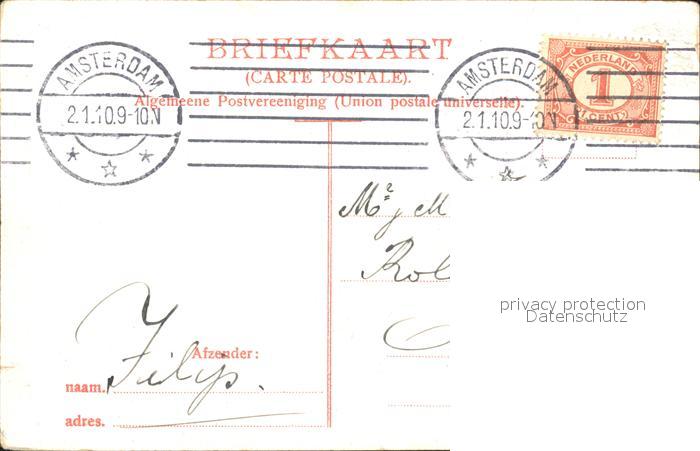 BRIEFKAART
(CARTE POSTALE).
Algemeene Postvereeniging (Union postale universelle).
AMSTERDAM
2.1.10.9-10N
AMSTERDAM
2.1.10.9-10N
NEDERLAND
1
CENT
Mr J M
Rol
privacy protection
Datenschutz
Afzender:
naam. Filips.
adres.